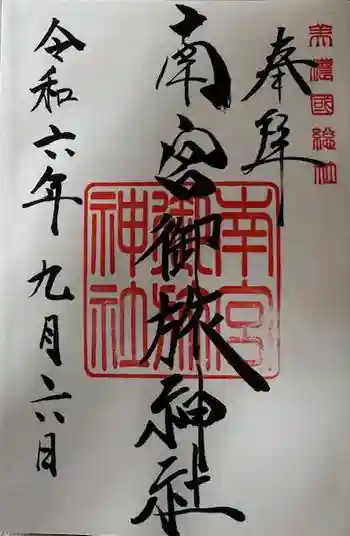 美濃國総社
奉拝
南宮御旅神社
南宮御旅神社
令和六年九月六日